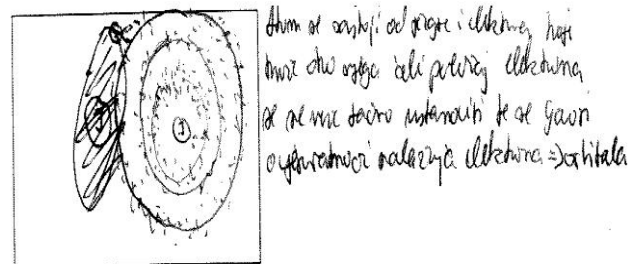 Atom se sastoji od jezgre i elektrona koji
kruže oko njega ali položaj elektrona
se ne može točno ustanoviti te se govori
o vjerovatnoći nalaženja elektrona => orbitala